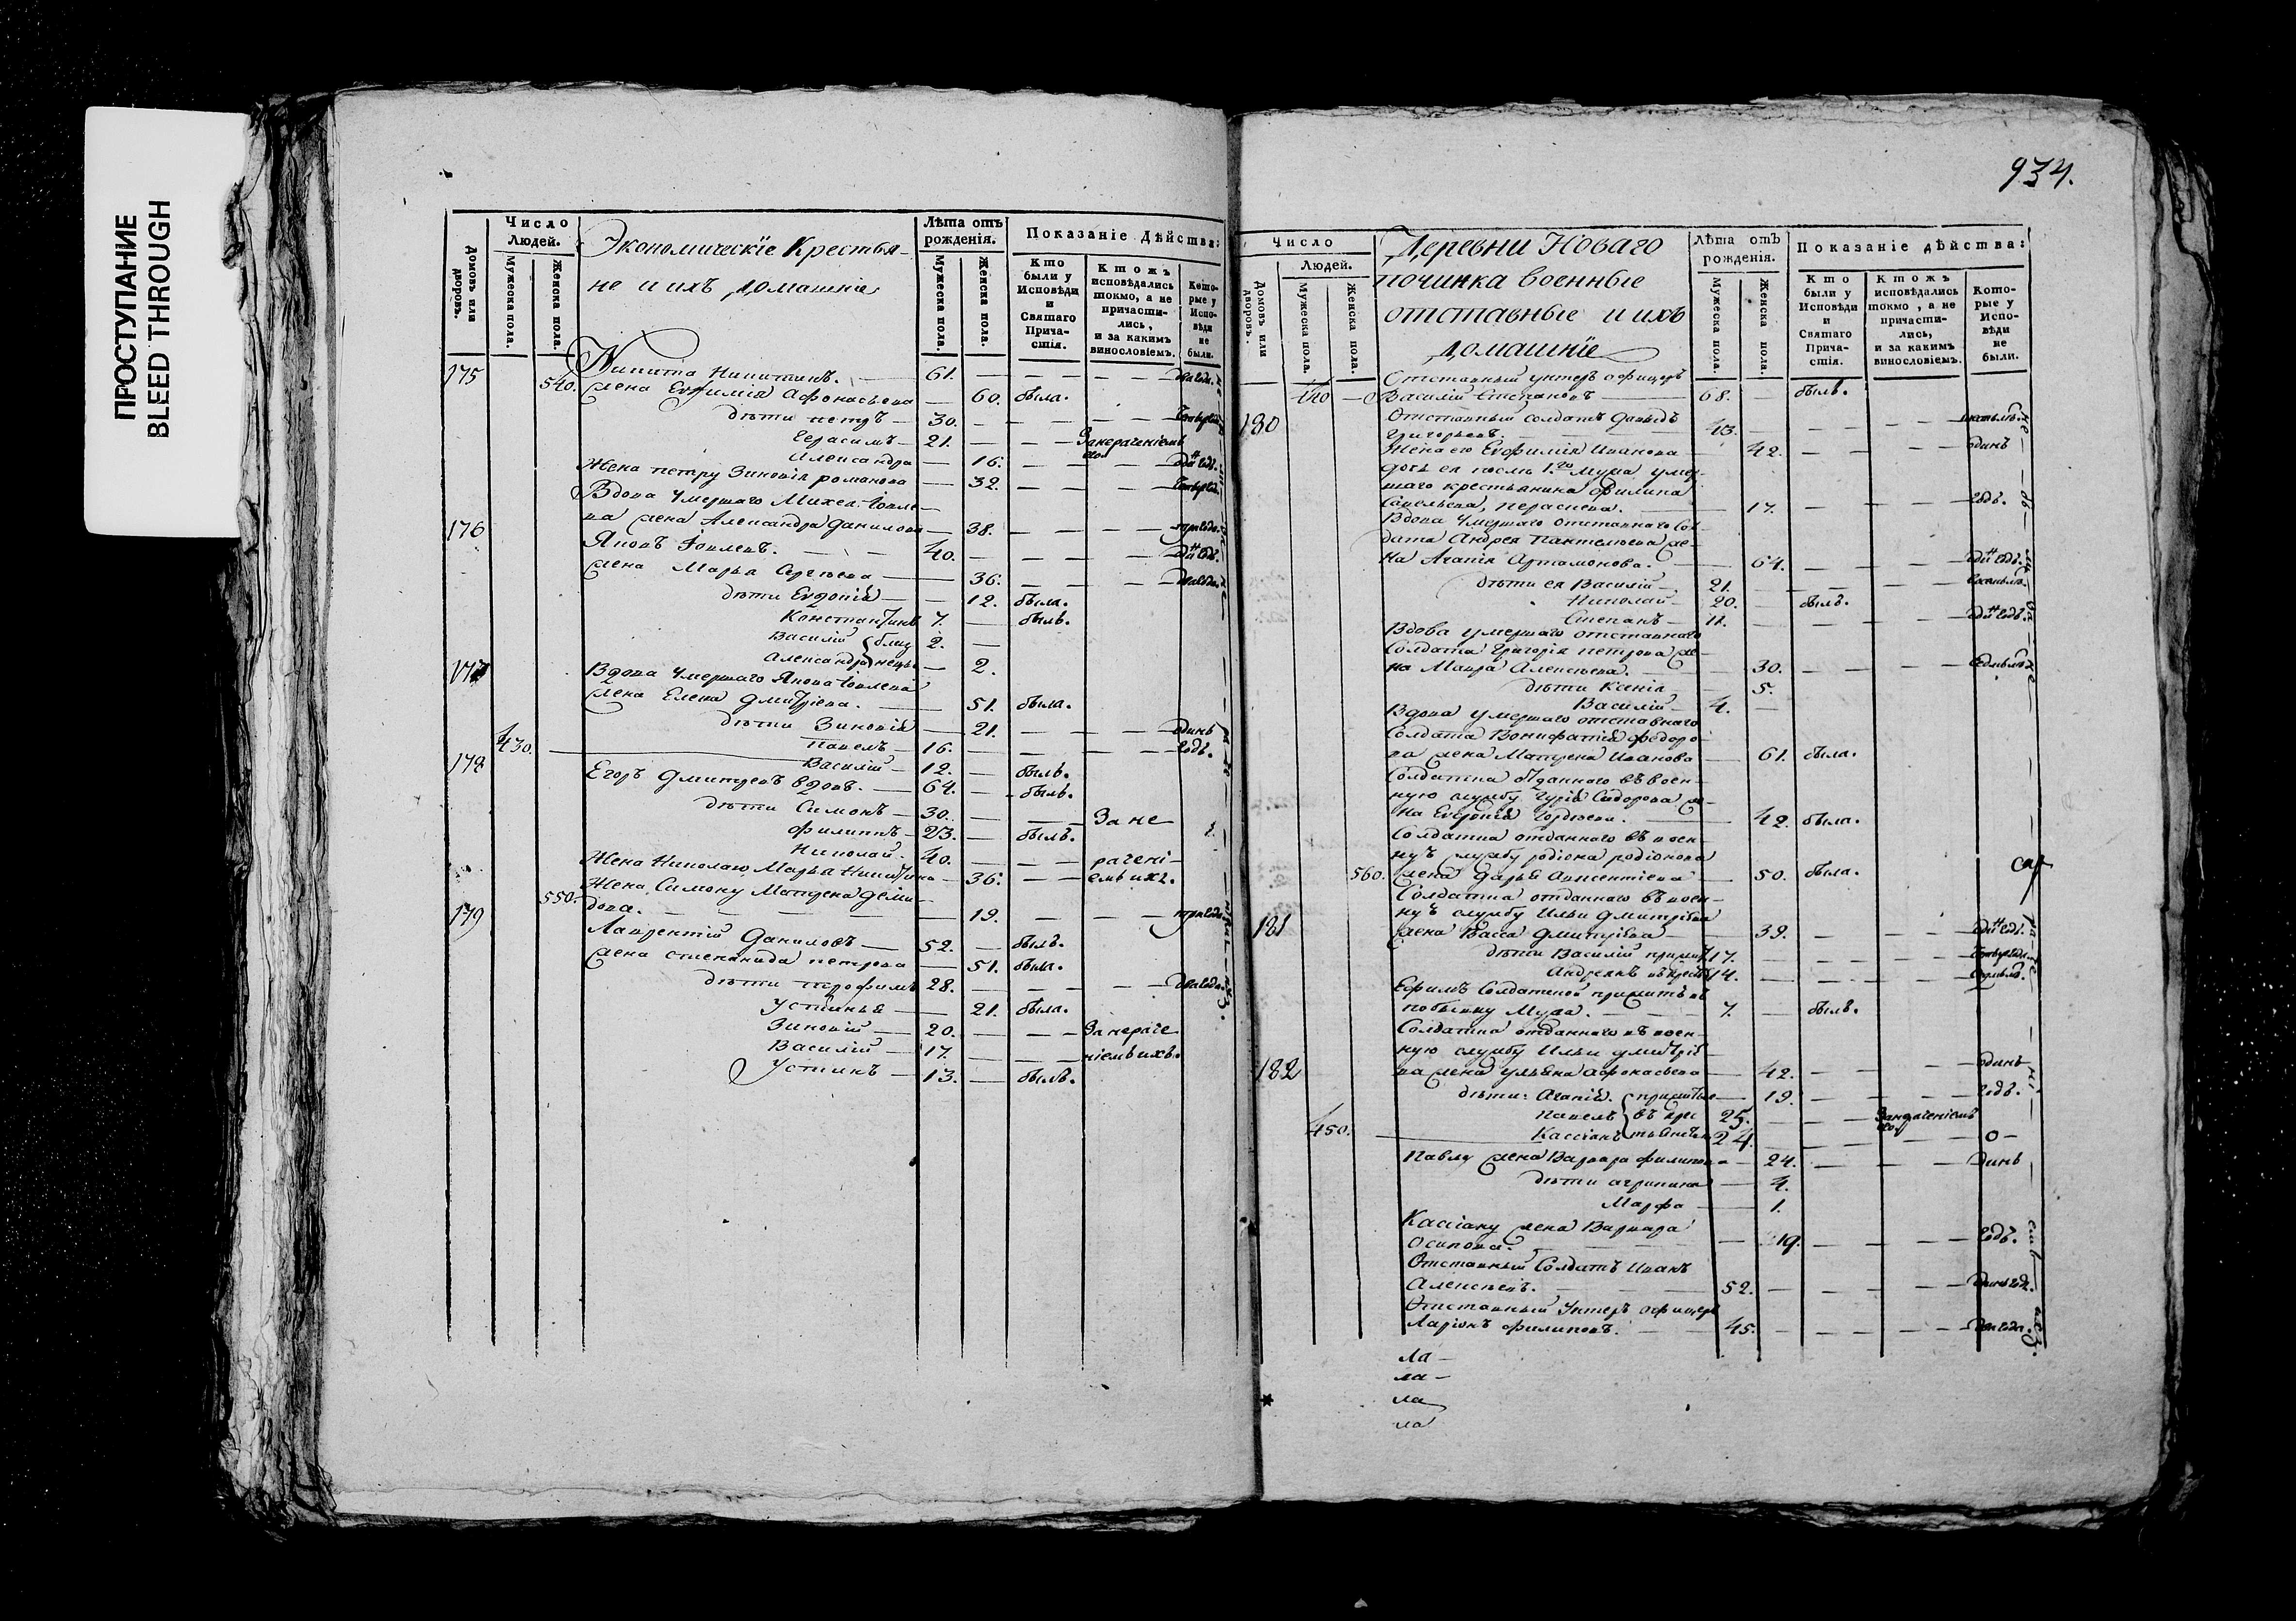 ПРОСТУПАНИЕ
BLEED THROUGH
Домовъ или дворовъ.
Число Людей.
Мужеска пола.
Женска пола.
Экономическїе Крестья-
не и ихъ домашнїе
Лѣта отъ рожденія.
Мужеска пола.
Женска пола.
Показаніе Дѣйства:
Кто были у Исповѣди и Святаго Прича-стія.
Ктожъ исповѣдались токмо, а не причасти-лись, и за какимъ винословіемъ.
Кото-рые у Испо-вѣди не были.
175 Никита Никитинъ. — 61. — — — — два года.
540. жена Евфимія Афонасьева — 60. была.
дѣти петръ — 30. — — — —
Герасимъ — 21. — — — Занераченіемъ
его
Александра — 16. — — — —
Жена петру Зиновія романова — 32. — — — —
Вдова Умершаго Михея Іовле-
176 ва жена Александра Данилова — 38. — — — — три года.
Яковъ Іовлевъ. — — 40. — — — —
жена Марья Сергѣева — 36. — — — — два года.
дѣти Евдокія — 12. была.
Константинъ 7. — былъ.
Василій близ 2. —
Александра нецы — 2.
177 Вдова Умершаго Якова Іовлева
жена Елена Дмитріева. — 51. была.
дѣти Зиновія — 21. — — — одинъ
430. Павелъ — 16. — — — — годъ.
Василій — 12. — былъ.
178 Егоръ Дмитревъ вдовъ. — 64. — былъ.
дѣти Симонъ — 30. — — — За не
филиппъ — 23. — былъ.
Николай. 40. — — — рачені-
Жена Николаю Марья Никитина — 36. — — — емъ ихъ.
Жена Симону Матрена Деми-
550. дова. — — — 19. — — — три года
179 Лаврентій Даниловъ — 52. — былъ.
жена степанида петрова — 51. была.
дѣти трофимъ 28. — — — — два года.
Устинья — 21. была.
Зиновій — 20. — — — Занераче
Василій — 17. — — — ніемъ ихъ.
Устинъ — 13. — былъ.
934.
Домовъ или дворовъ.
Число Людей.
Мужеска пола.
Женска пола.
Деревни Новаго
починка военные
отставные и ихъ
домашнїе
Лѣта отъ рожденія.
Мужеска пола.
Женска пола.
Показаніе дѣйства:
Кто были у Исповѣди и Святаго Прича-стія.
Ктожъ исповѣдались токмо, а не причасти-лись, и за какимъ винословіемъ.
Кото-рые у Испо-вѣди не были.
Отставный унтеръ офицеръ
440 Василій Степановъ — 68. — былъ.
180 Отставный солдатъ Давыдъ
Григорьевъ. 43. — — — —
Жена его Евфимія Иванова — 42. — — — одинъ
дочь ея послѣ 1.го мужа умер-
шаго крестьянина Филипа
Савельева, — 17. — — — годъ.
Вдова Умершаго отставнаго Сол-
дата Андрея Пантелѣева же-
на Агапія Артамонова. — 64. — — —
дѣти ея Василій — 21. — — —
Николай — 20. — былъ.
Степанъ — 11. — — — —
Вдова умершаго отставнаго
Солдата Григорія петрова же-
на Мавра Алексѣева. — 30. — — —
дѣти Ксенія — 5.
Василій — 4. —
Вдова умершаго отставнаго
Солдата Вонифатія федоро-
ва жена Матрена Иванова — 61. была.
Солдатка отданнаго въ воен-
ную службу Гурія Сидорова же-
на Евдокія Гордѣева. — 42. была.
Солдатка отданнаго въ воен-
нуъ службу родіона родіонова
560. жена Дарья Авксентіева — 50. была.
Солдатка отданнаго въ воен-
нуъ службу Ильи Дмитріева
181 жена Васса Дмитріева — 39. — — —
дѣти Василій 17. — — — —
Андреянъ 14. — — — —
Ефимъ Солдаткой
мужа. — 7. — былъ.
Солдатка отданнаго въ воен-
ную службу Ильи дмитріе-
182 ва жена ульяна Афонасьева — 42. — — — одинъ
дѣти: Агапія — 19. — — — годъ.
Павелъ въ крес 25. — — — Занераченіемъ
его
450. Кассіанъ 24. — — — — о —
Павлу жена Варвара филипова — 24. — — — динъ
дѣти агрипина — 4.
Марфа — 1.
Кассіану жена Варвара
Осипова. — 19. — — — годъ.
Отставный Солдатъ Иванъ
Алексѣевъ. — 52. — — — —
Отставный Унтеръ офицеръ
Ларіонъ филиповъ. — 45. — — — — два года.
ла —
ла —
ла
ла